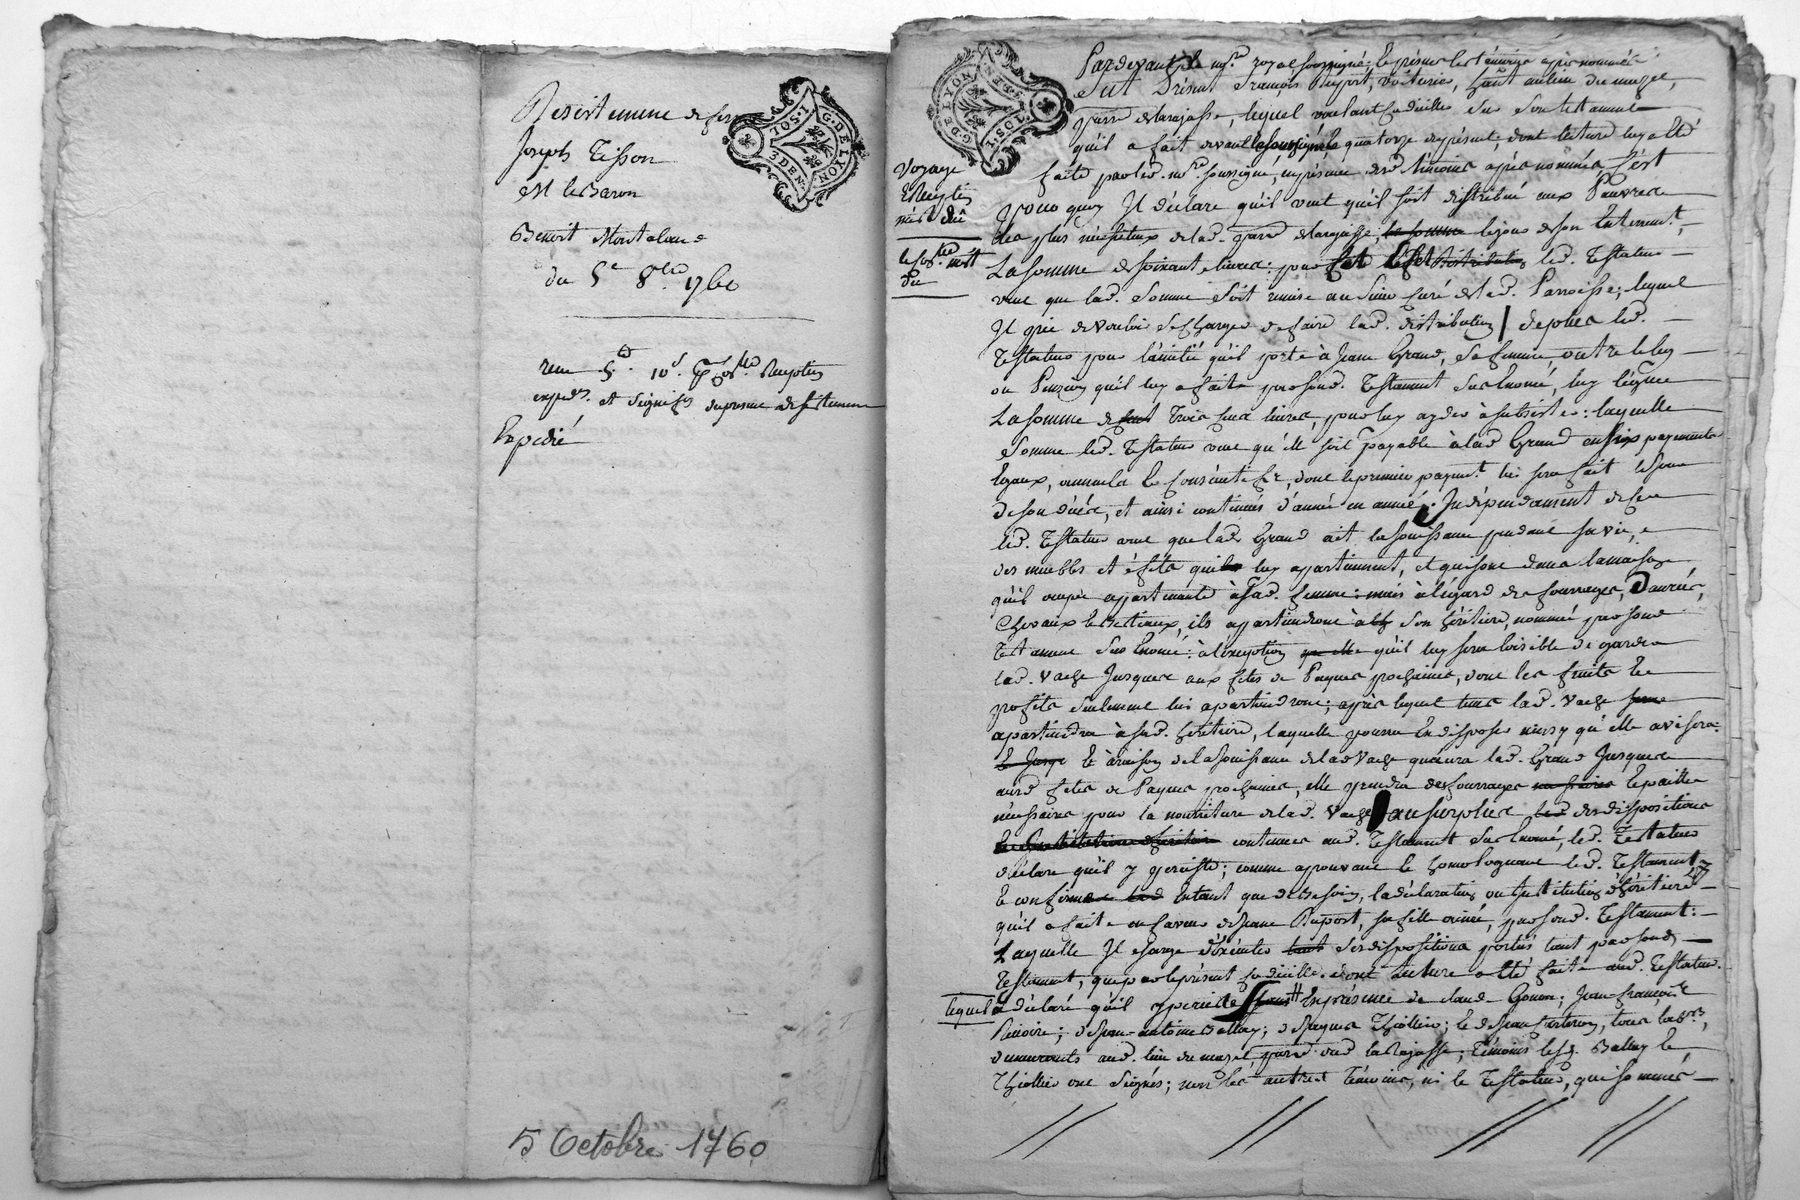 Desistement de
Joseph Tisson
et le Baron
Benoit
du 5e 8bre 1760
5. 10s. Reception
et
Expedié
5 Octobre 1760
G. DE LYON
1. SOL.
8. DEN.
G. DE LYON
1. SOL.
8. DEN.
Voyage
Reception
Pardevant le no.re royal soussigné, & présens les témoins après nommés
fut présent François Duport, voiturier, lieu du
parre de larajasse, lequel voulant codiciller sur son testament
qu'il a fait devant le quatorze du présent, dont lecture luy a été
faite par led. no.re soussigné, en présence des témoins après nommés, c'est
pourquoy Il déclare qu'il veut qu'il soit distribué aux Pauvres
les plus nécessiteux de lad. parre de larajasse, la somme le jour de son Enterrement,
La somme de soixante livres: led. Testateur
veut que lad. somme soit remise au sieur curé de lad. Parroisse, lequel
Il prie de vouloir se charger de faire lad. distribution / de plus led.
Testateur pour l'amitié qu'il porte à Jeanne Grand, sa femme, outre le leg
ou Pension qu'il luy a fait par sond. Testament sus Enoncé, luy lègue
La somme de trois cens livres, pour luy ayder à subsister: laquelle
somme led. Testateur veut qu'elle soit payable à lad. Grand en six payements
Egaux, annuels & consécutifs, dont le premier payemt. lui sera fait
de son décès, et ainsi continués d'année en année; Indépendament de ce
led. Testateur veut que lad. Grand ait la Jouissance pendant sa vie,
des meubles et éfets qui luy appartiennent, et qui sont dans la maison
qu'il occupe appartenante à sad. femme: mais à l'égard des fourrages, Danrées,
Chevaux & bestiaux, ils appartiendront à son héritière, nommée par sond.
Testament sus Enoncé: à l'exception qu'il luy sera loisible de garder
lad. vache Jusques aux fêtes de Pâques prochaines, dont les fruits &
profits seulement lui apartiendront; après lequel tems lad. vache
apartiendra à sad. héritière, laquelle pourra En disposer ainsy qu'elle avisera:
& à raison de la Jouissance de lad. vache qu'aura lad. Grand Jusques
auxd. fetes de Pâques prochaines, elle prendra des fourrages & paille
nécessaires pour la nourriture de lad. vache / au surplus des dispositions
contenues aud. Testament sus Enoncé, led. Testateur
déclare qu'il y persiste; comme aprouvant & homologuant led. Testament
& confirme En tant que de besoin, la déclaration ou Institution d'héritière
qu'il a fait en faveur de Jeanne Duport, sa fille ainée, par sond. Testament:
Laquelle Il charge d'éxécuter ses dispositions portées tant par sond.
Testament, que par le présent codicille. dont lecture a été faite aud. Testateur.
lequel a déclaré qu'il y persiste En présence de claude Gonon; Jean françois
de Jean-antoine Ballay; de Jacques Thiollier; & de Jean tous
demeurants aud. lieu du parre dud. la Rajasse, témoins led. Ballay &
Thiollier ont signés; non les autres Témoins, ni le Testateur, qui sommés